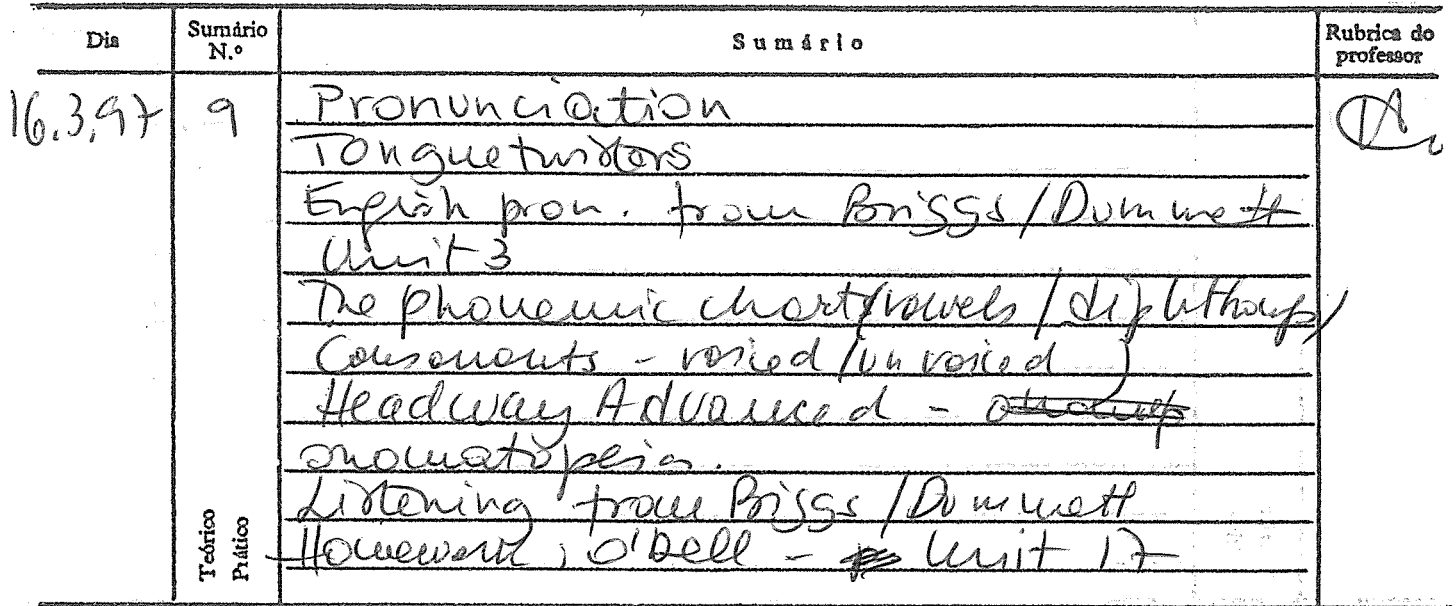 Dia Sumário N.º Sumário Rubrica do professor
16.3.97 9 Pronunciation
Tonguetwisters
English pron. from Briggs/Dummett
Unit 3
The phonemic chart/vowels/diphthongs/
Consonants - voiced/unvoiced
Headway Advanced -
onomatopeia.
Listening from Briggs/Dummett
Homework: O'Dell - Unit 17
Teórico
Prático